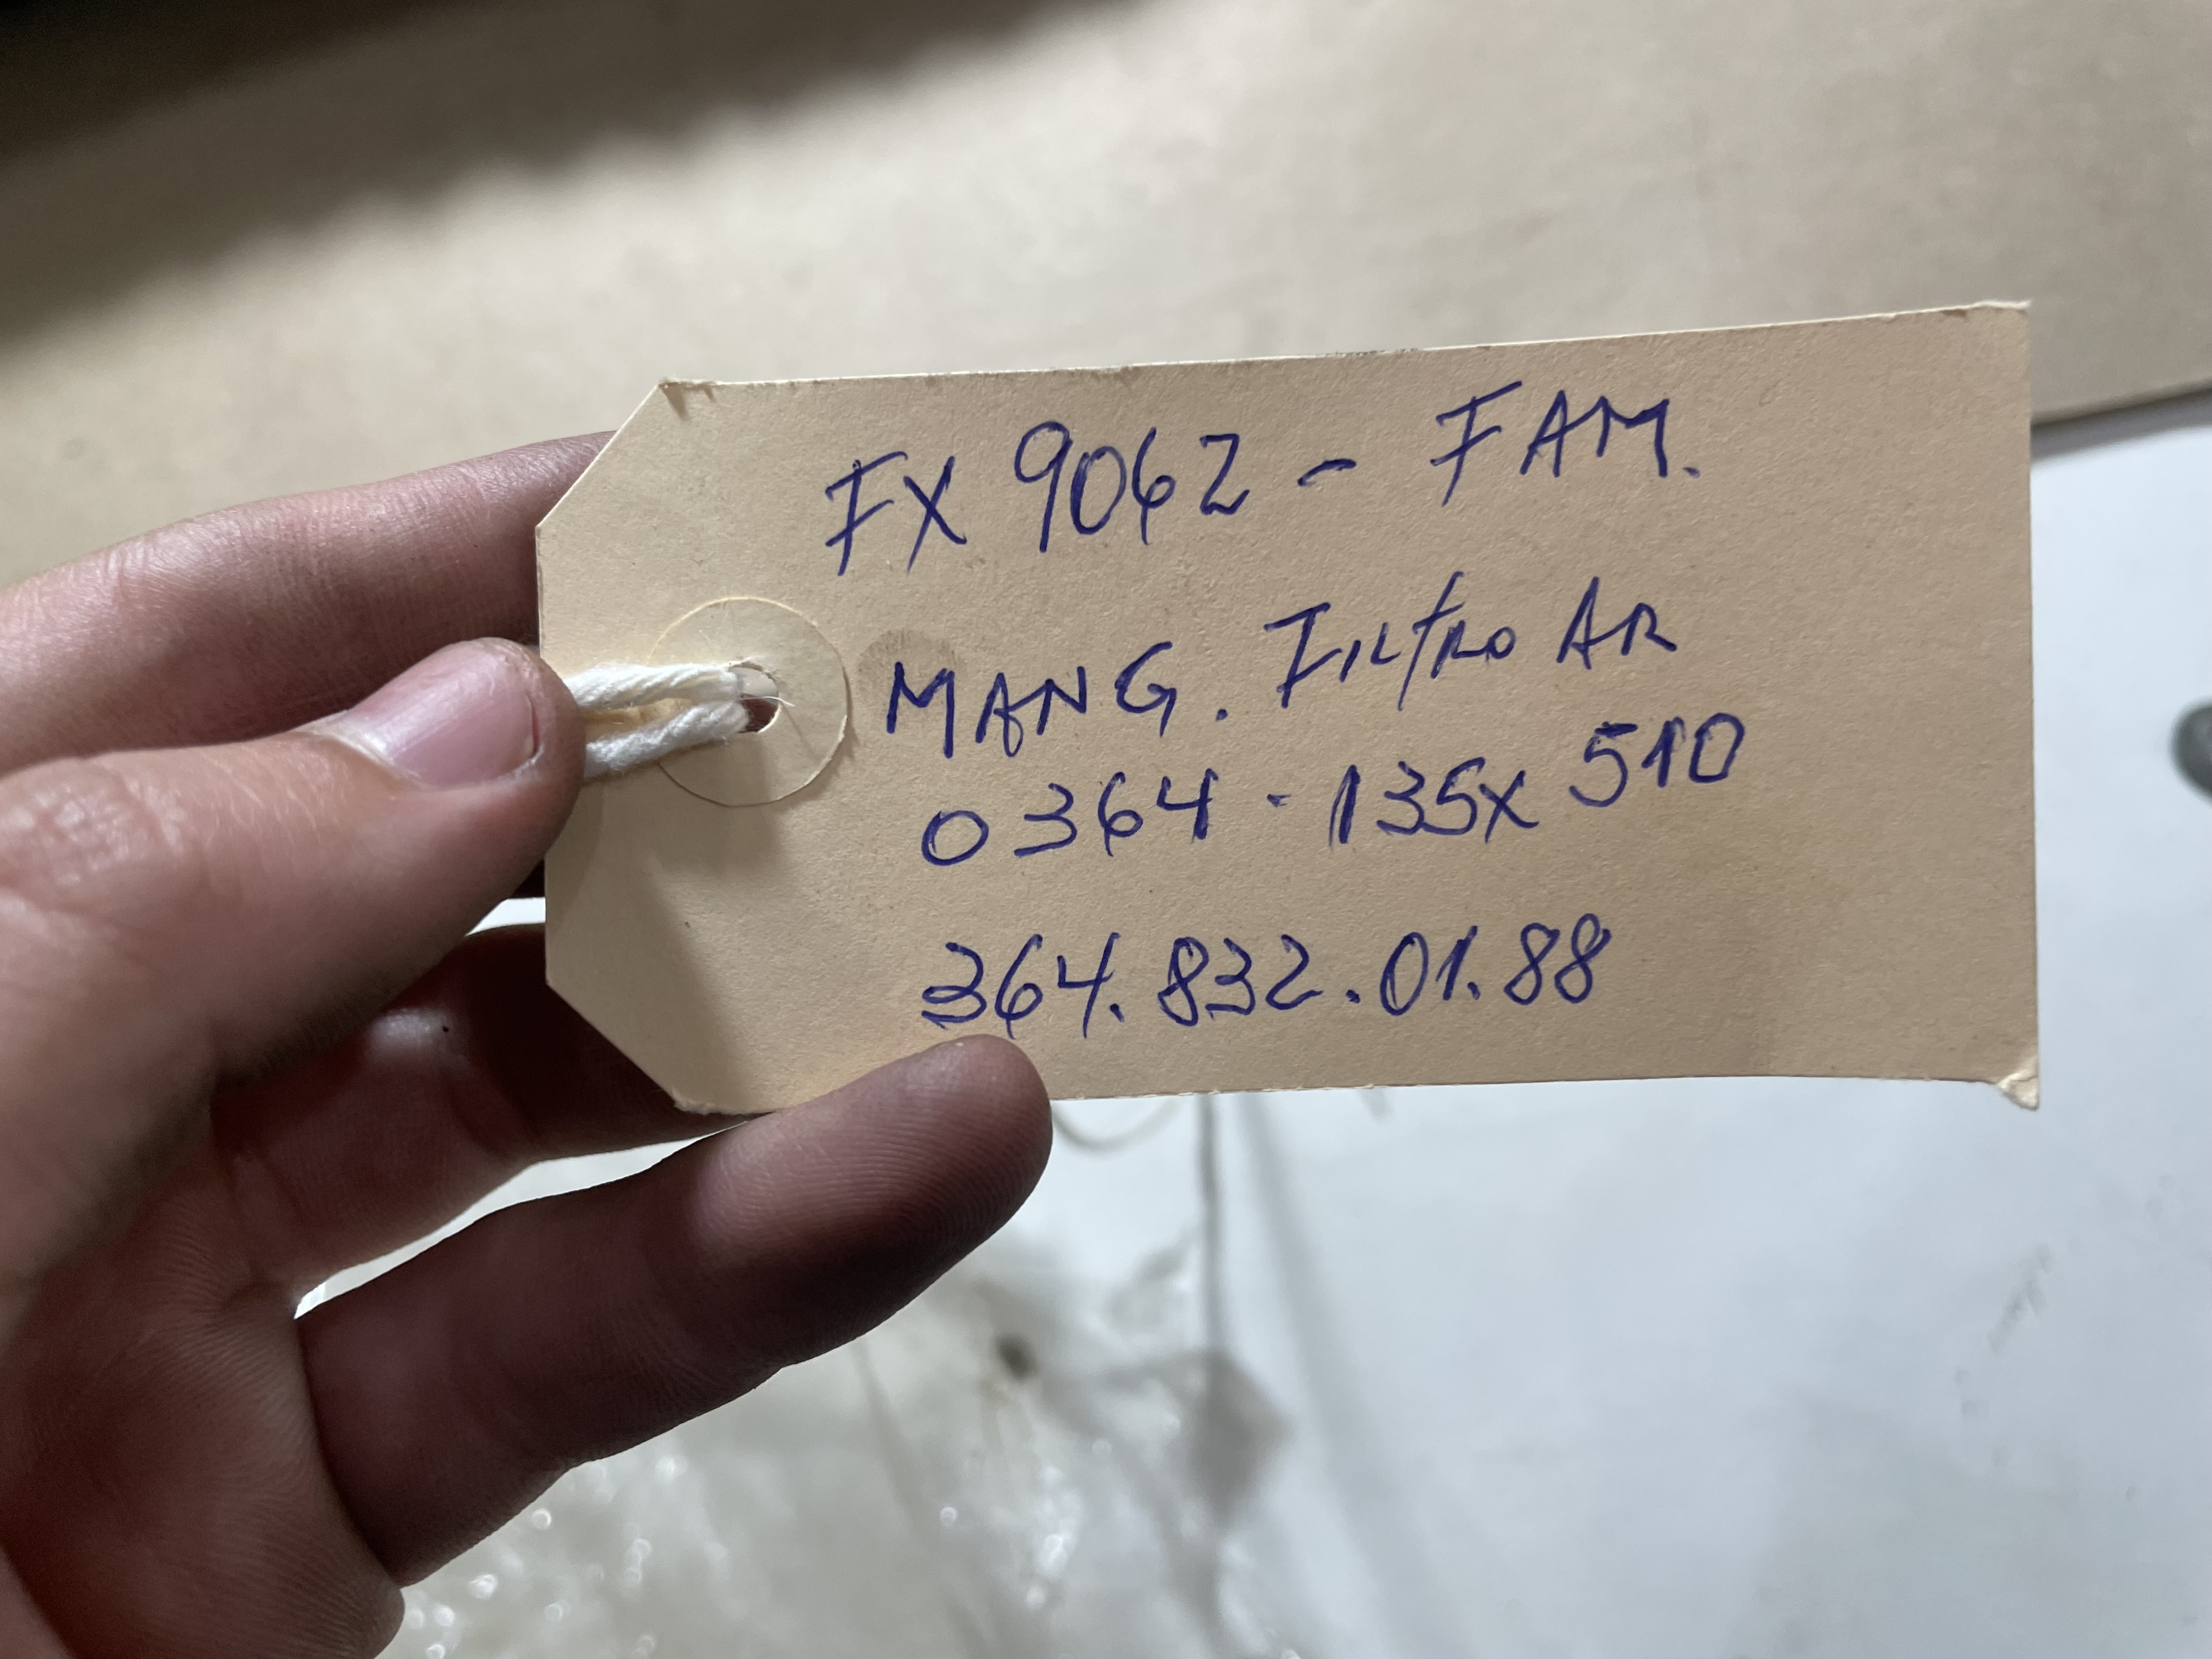 FX 9062 - FAM.
MANG. Filtro AR
0364 - 135x510
364.832.01.88